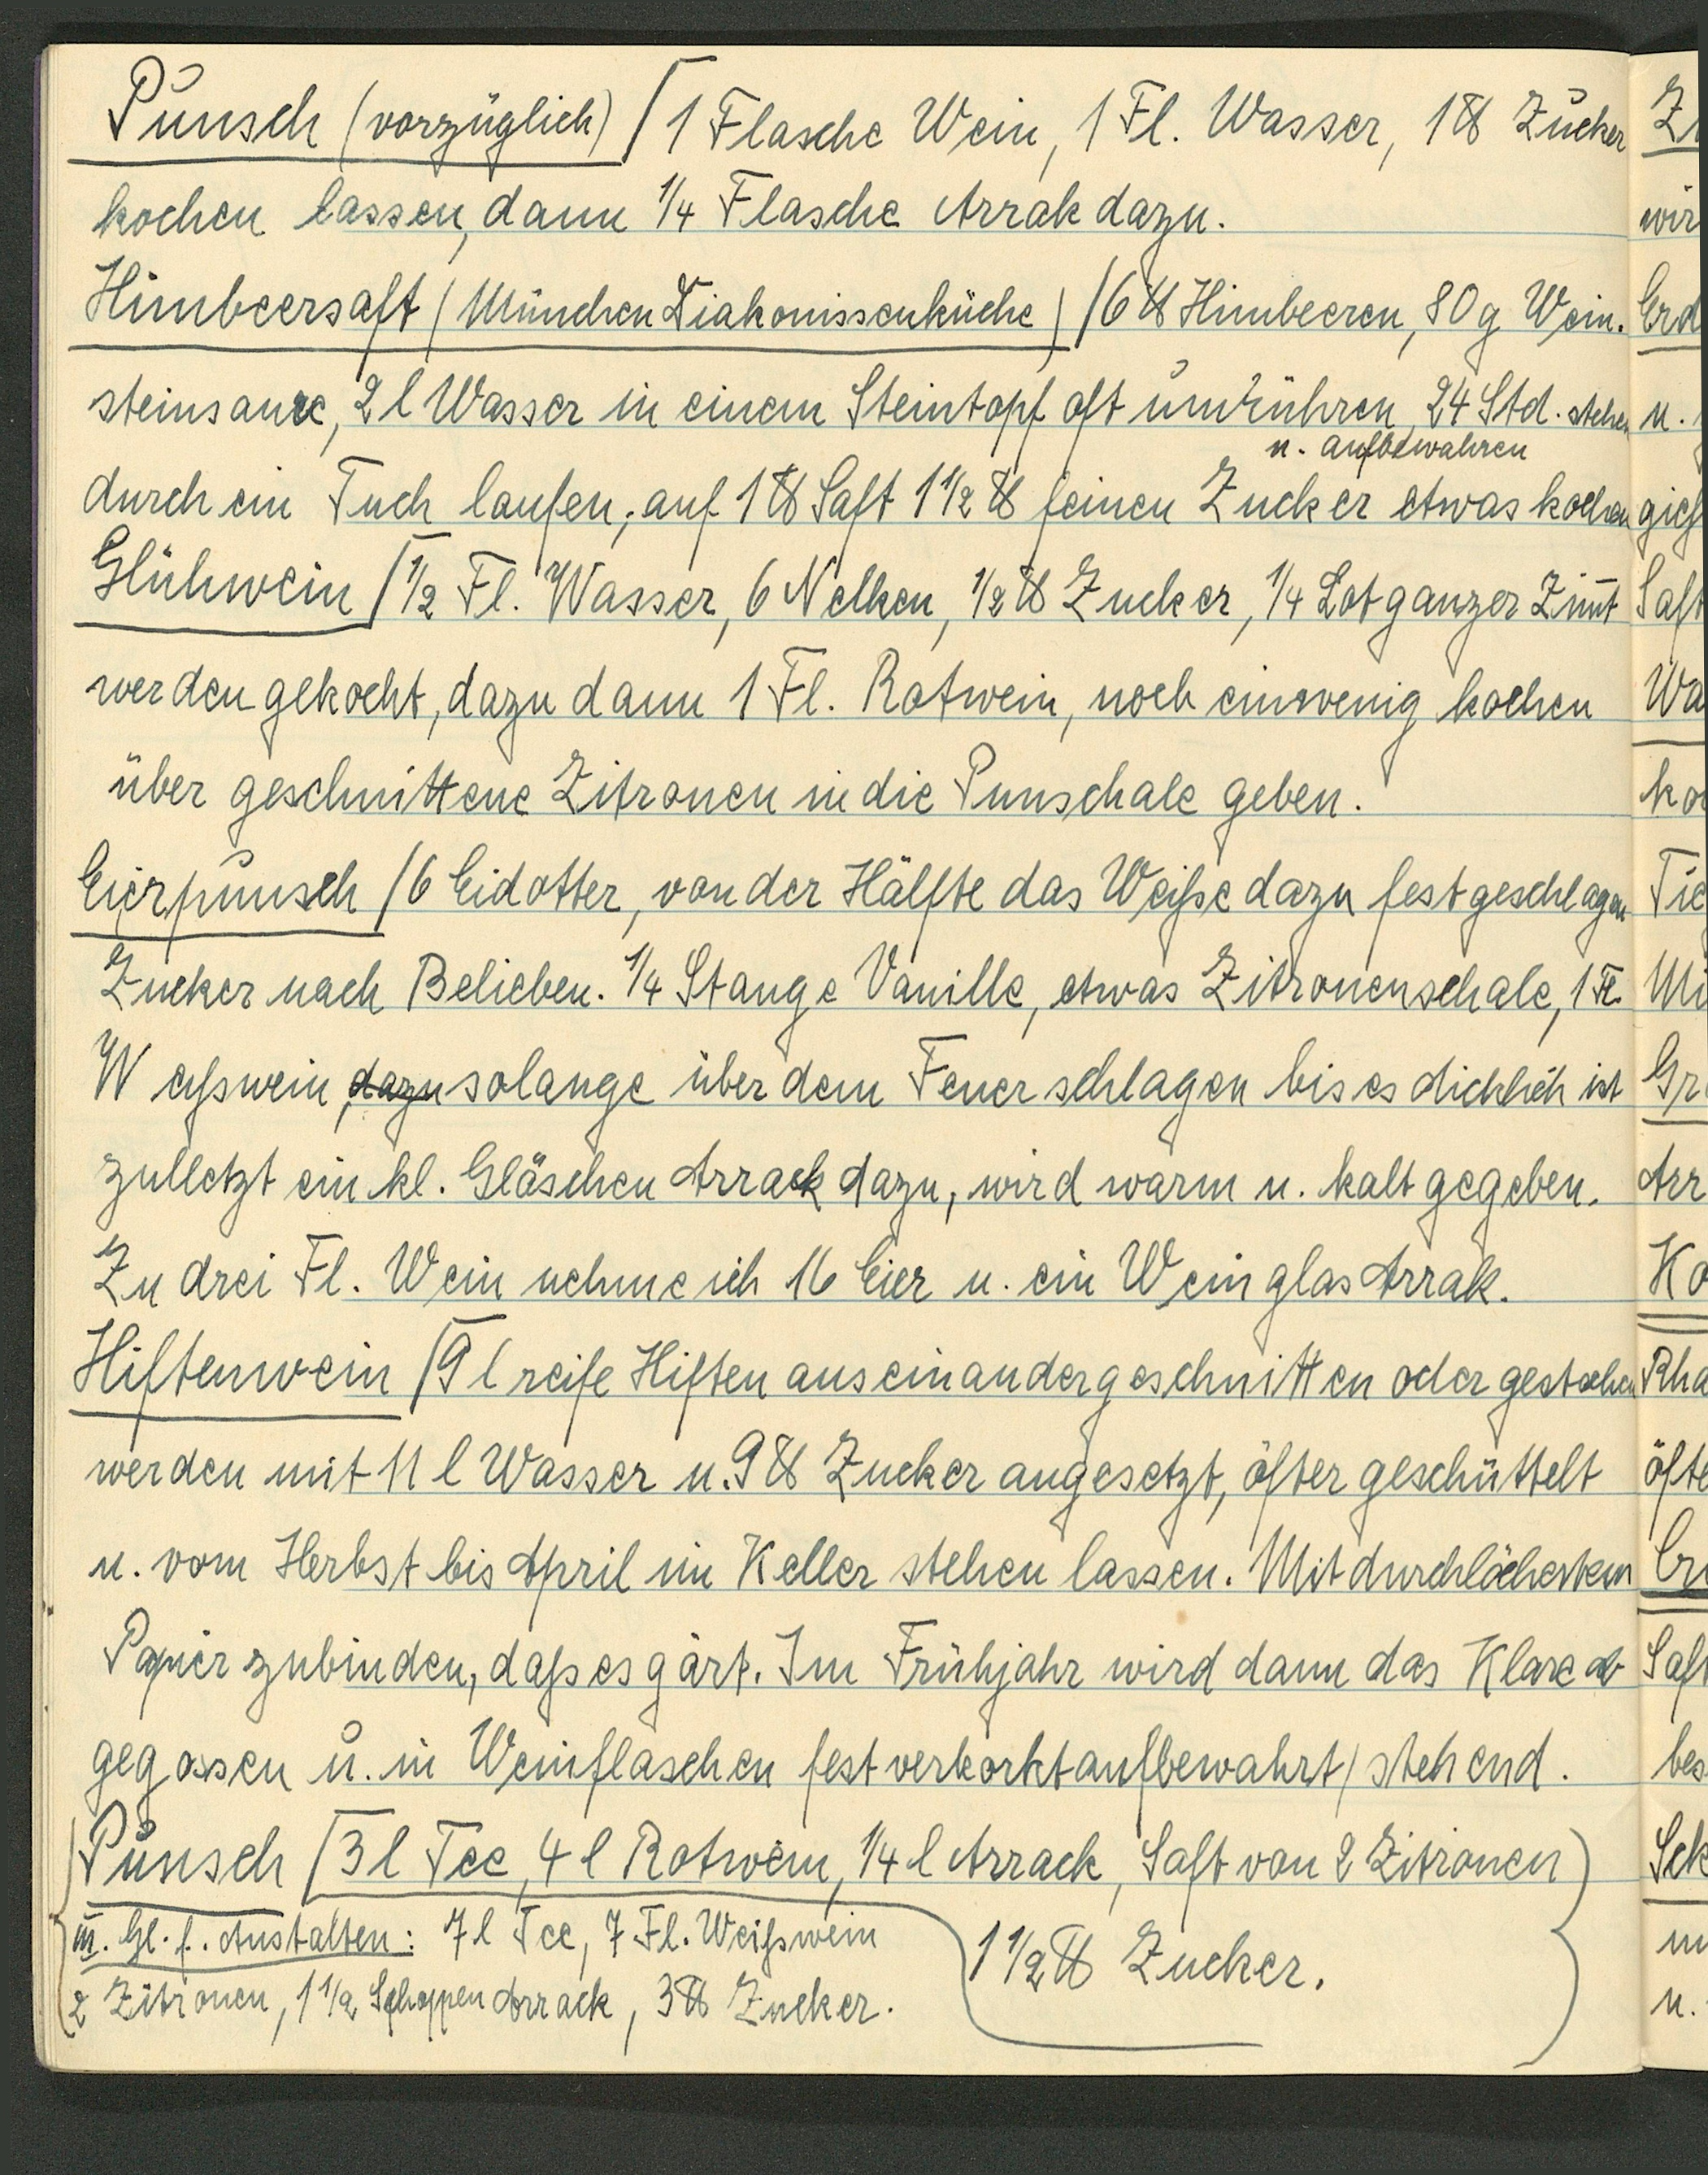 Punsch (vorzüglich) / 1 Flasche Wein, 1 Fl. Wasser, 1 ℔ Zucker
kochen lassen, dann 1/4 Flasche Arrak dazu.
Himbeersaft (München Diakonissenküche) / 6 ℔ Himbeeren, 80 g Wein-
steinsaure, 2 l Wasser in einem Steintopf oft umrühren, 24 Std. stehen
u. aufbewahren
durch ein Tuch laufen; auf 1 ℔ Saft 1 1/2 ℔ feinen Zucker etwas kochen
Glühwein / 1/2 Fl. Wasser, 6 Nelken, 1/2 ℔ Zucker, 1/4 Lot ganzer Zim̄t
werden gekocht, dazu dann 1 Fl. Rotwein, noch ein wenig kochen
über geschnittene Zitronen in die Punschale geben.
Eierpunsch / 6 Eidotter, von der Hälfte das Weiße dazu fest geschlagen
Zucker nach Belieben. 1/4 Stange Vanille, etwas Zitronenschale, 1 Fl.
Weißwein, dazu solange über dem Feuer schlagen bis es dichlich ist
zulletzt ein kl. Gläschen Arrack dazu, wird warm u. kalt gegeben.
Zu drei Fl. Wein nehme ich 16 Eier u. ein Weinglas Arrak.
Hiftenwein / 9 l reife Hiften auseinandergeschnitten oder gestochen
werden mit 11 l Wasser u. 9 ℔ Zucker angesetzt, öfter geschüttelt
u. vom Herbst bis April im Keller stehen lassen. Mit durchlöchertem
Papier zubinden, daß es gärt. Im Frühjahr wird dann das Klare ab
gegossen u. in Weinflaschen fest verkorkt aufbewahrt / stehend.
Punsch / 3 l Tee, 4 l Rotwein, 1/4 l Arrack, Saft von 2 Zitronen
1 1/2 ℔ Zucker.
Gl. f. Anstalten: 7 l Tee, 7 Fl. Weißwein
2 Zitronen, 1 1/2 Schoppen Arrack, 3 ℔ Zucker.